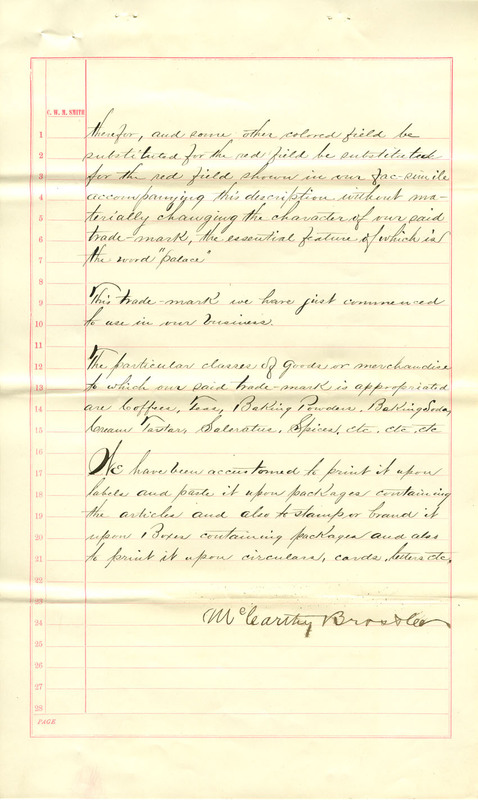 C. W. M. SMITH
1 therefor, and some other colored field be
2 substituted for the red field be substituted
3 for the red field shown in our fac-simile
4 accompanying this description without ma-
5 terially changing the character of our said
6 trade-mark, the essential feature of which is
7 the word "Palace"
8
9 This trade-mark we have just commenced
10 to use in our business.
11
12 The particular classes of goods or merchandise
13 to which our said trade-mark is appropriated
14 are Coffees, Teas, Baking Powders, Baking Soda,
15 Cream Tartar, Saleratus, Spices, etc. etc. etc
16
17 We have been accustomed to print it upon
18 labels and paste it upon packages containing
19 the articles and also to stamp or brand it
20 upon Boxes containing packages and also
21 to print it upon circulars, cards, letters etc.
22
23
24 McCarthy Bros & Co
25
26
27
28
PAGE